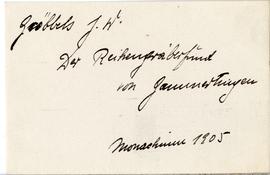 Gröbbels J. W.
Der Reihengräberfund
von Gammertingen
Monachium 1905